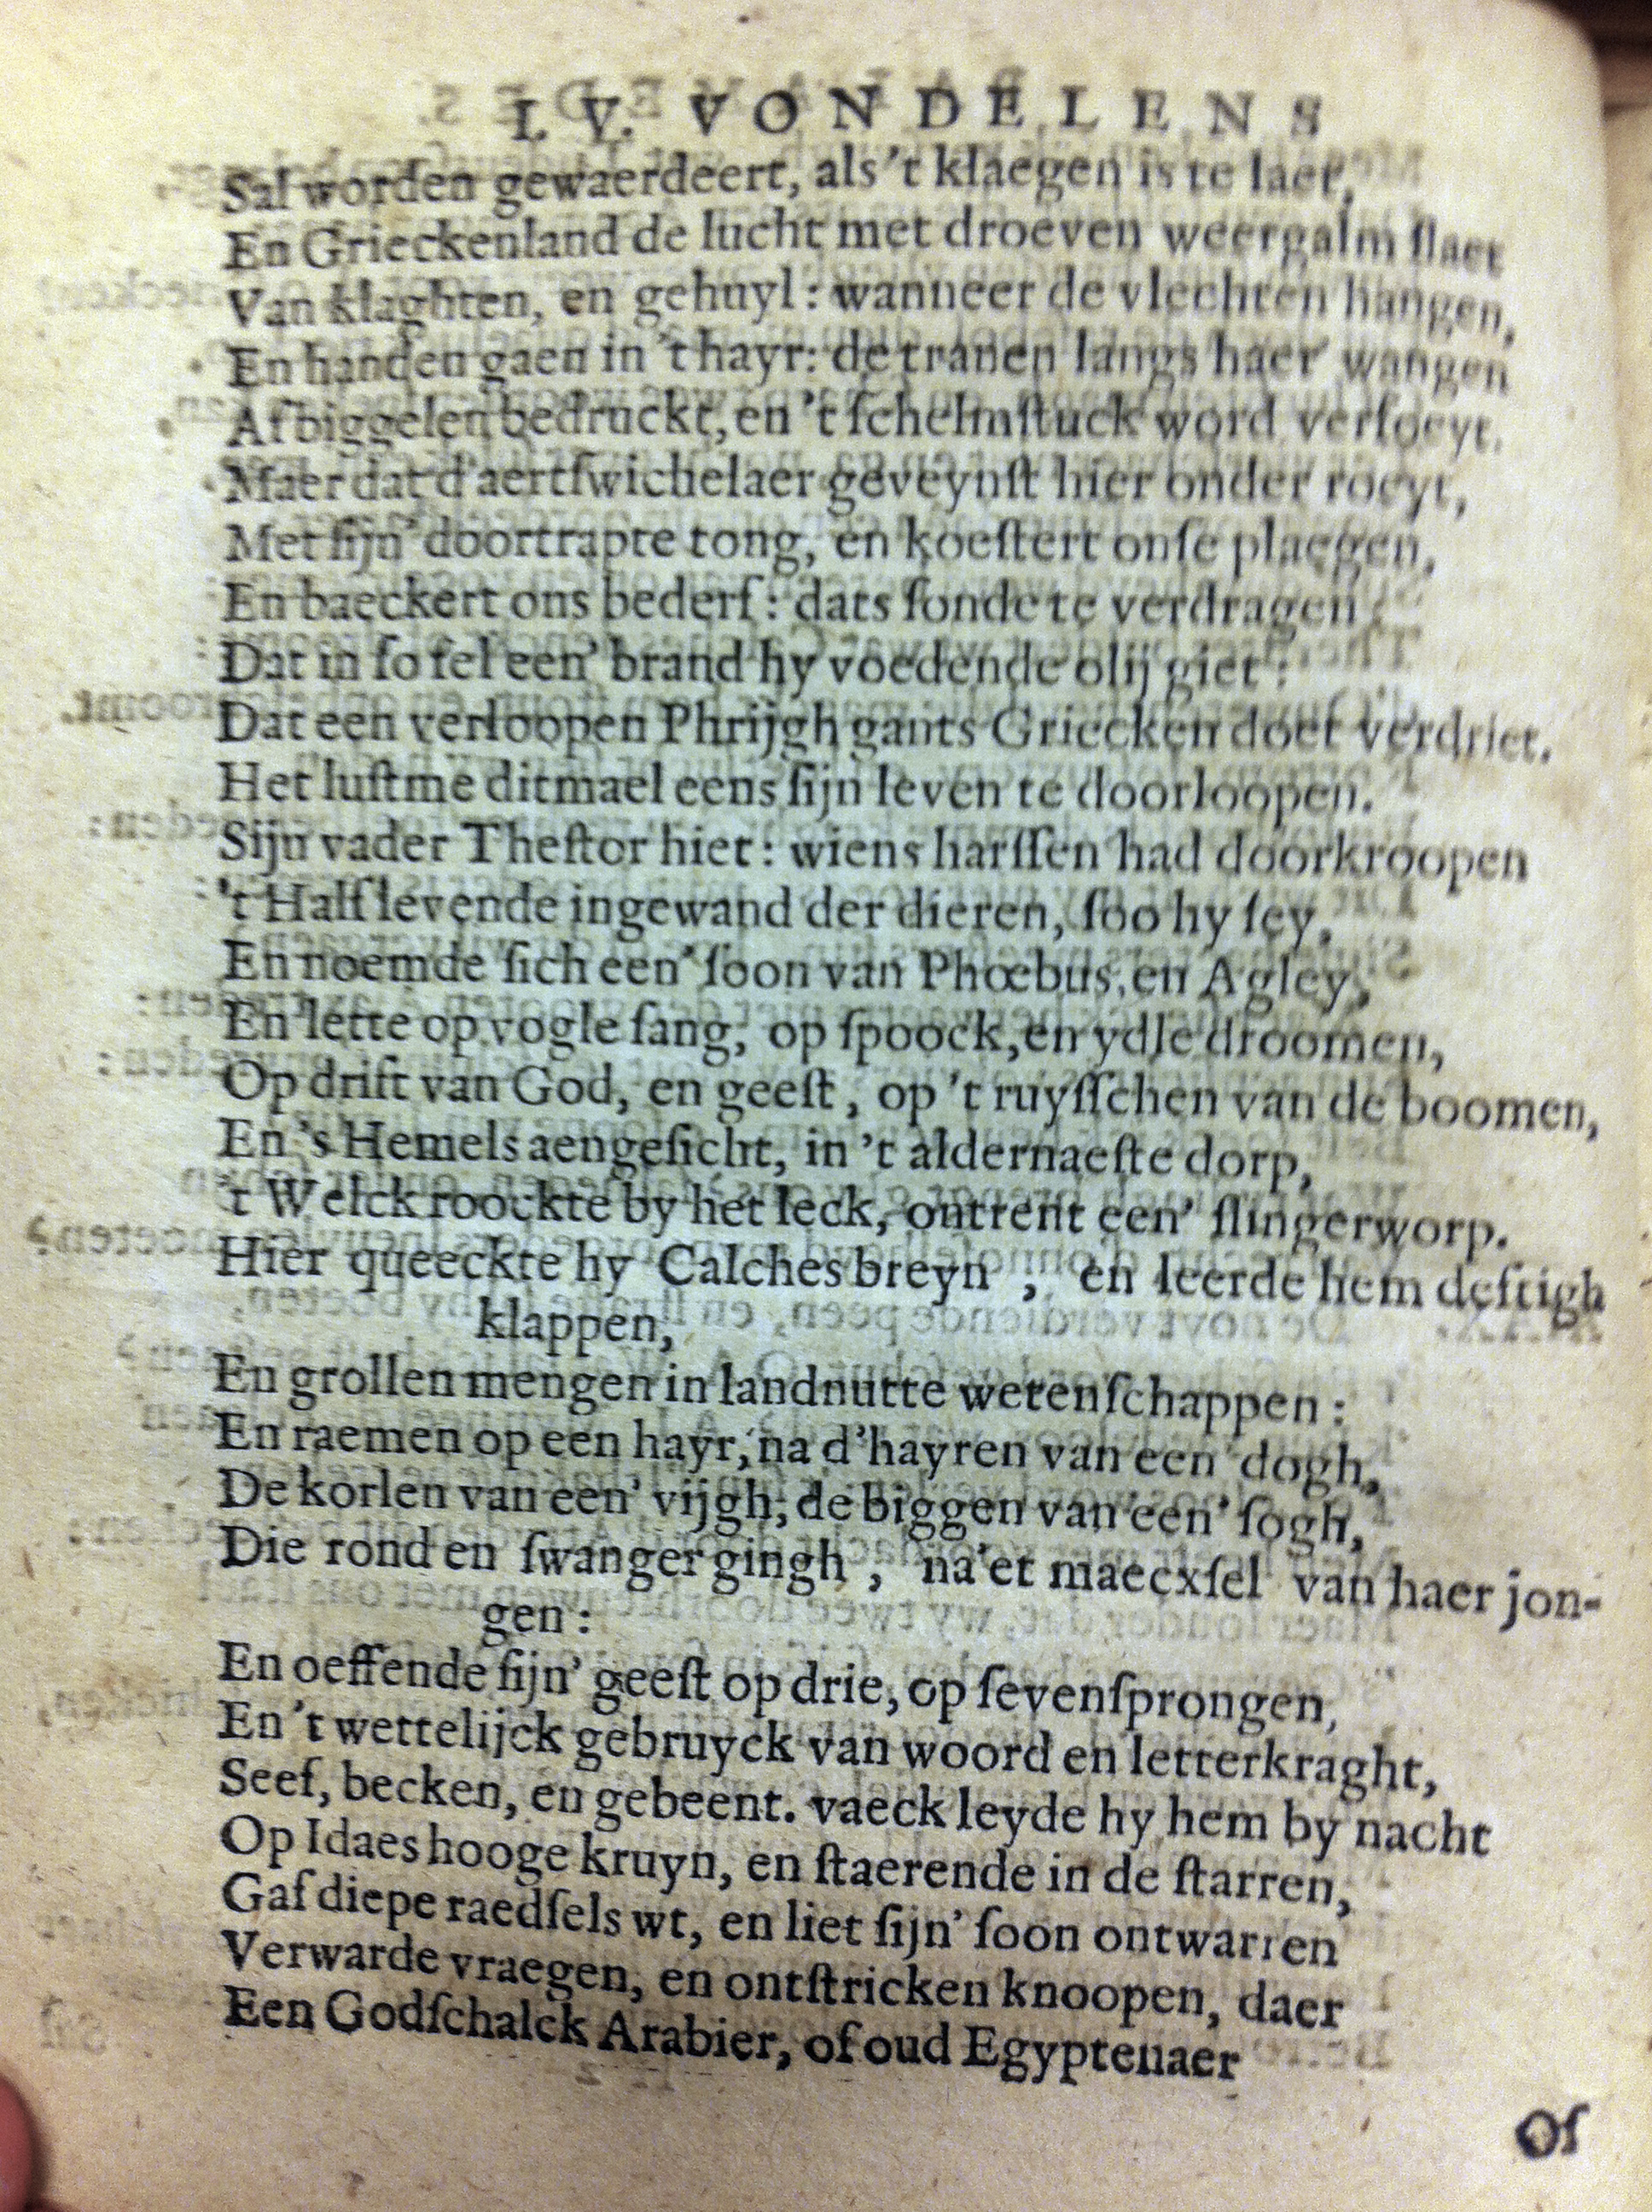 I. V. VONDELENS
Sal worden gewaerdeert, als 't klaegen is te laet,
En Grieckenland de lucht met droeven weergalm ſlaet
Van klaghten, en gehuyl: wanneer de vlechten hangen,
En handen gaen in 't hayr: de tranen langs haer wangen
Af biggelen bedruckt, en 't ſchelmſtuck word verfoeyt.
Maer dat d'aertſwichelaer geveynſt hier onder roeyt,
Met ſijn' doortrapte tong, en koeſtert onſe plaegen,
En baeckert ons bederf: dats ſonde te verdragen
Dat in ſo fel een' brand hy voedende olij giet:
Dat een verloopen Phrijgh gants Griecken doet verdriet.
Het luſt me ditmael eens ſijn leven te doorloopen.
Sijn vader Theſtor hiet: wiens harſſen had doorkroopen
't Half levende ingewand der dieren, ſoo hy ſey,
En noemde ſich een' ſoon van Phœbus, en Agley,
En lette op vogle ſang, op ſpoock, en ydle droomen,
Op drift van God, en geeſt, op 't ruyſſchen van de boomen,
En 's Hemels aengeſicht, in 't aldernaeſte dorp,
't Welck roockte by het leck, ontrent een' ſlingerworp.
Hier queeckte hy Calches breyn, en leerde hem deftigh
klappen,
En grollen mengen in landnutte wetenſchappen:
En raemen op een hayr, na d'hayren van een dogh,
De korlen van een' vijgh, de biggen van een' ſogh,
Die rond en ſwanger gingh, na'et maecxſel van haer jon-
gen:
En oeffende ſijn' geeſt op drie, op ſevenſprongen,
En 't wettelijck gebruyck van woord en letterkraght,
Seef, becken, en gebeent. vaeck leyde hy hem by nacht
Op Idaes hooge kruyn, en ſtaerende in de ſtarren,
Gaf diepe raedſels wt, en liet ſijn' ſoon ontwarren
Verwarde vraegen, en ontſtricken knoopen, daer
Een Godſchalck Arabier, of oud Egyptenaer
Of